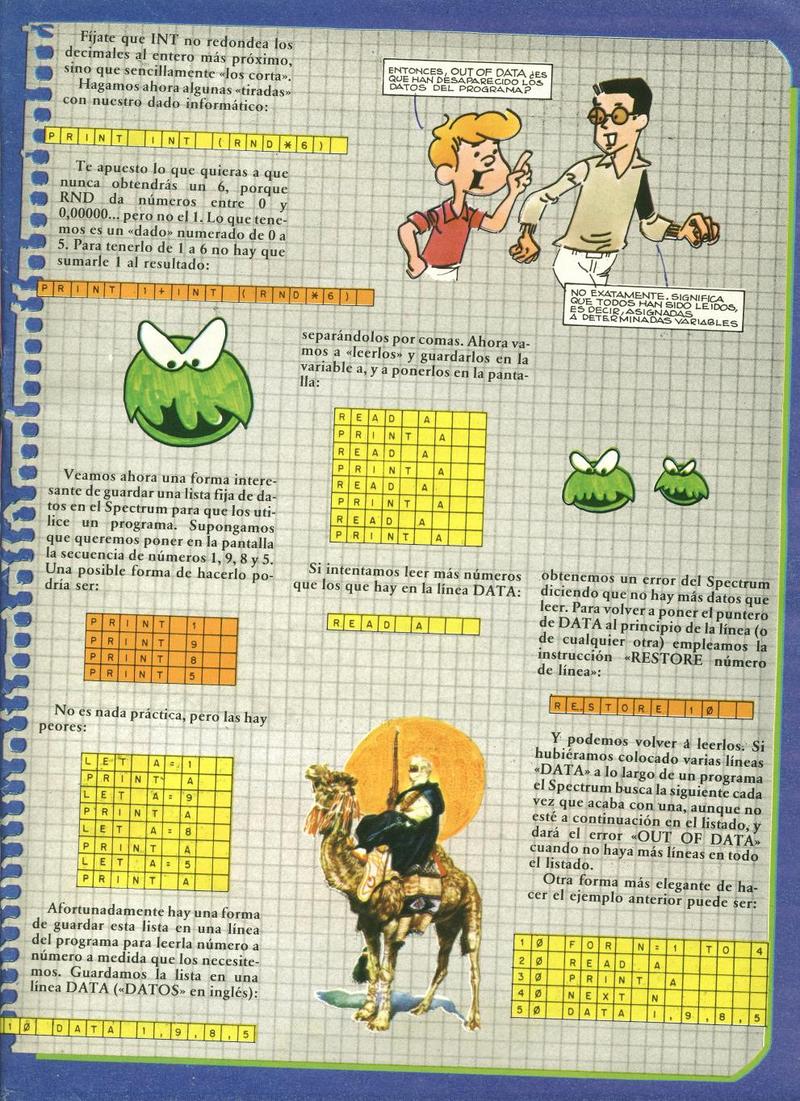 Fíjate que INT no redondea los
decimales al entero más próximo,
sino que sencillamente «los corta».
Hagamos ahora algunas «tiradas»
con nuestro dado informático:
PRINT INT (RND*6)
Te apuesto lo que quieras a que
nunca obtendrás un 6, porque
RND da números entre 0 y
0,00000... pero no el 1. Lo que tene-
mos es un «dado» numerado de 0 a
5. Para tenerlo de 1 a 6 no hay que
sumarle 1 al resultado:
PRINT 1+INT (RND*6)
Veamos ahora una forma intere-
sante de guardar una lista fija de da-
tos en el Spectrum para que los uti-
lice un programa. Supongamos
que queremos poner en la pantalla
la secuencia de números 1, 9, 8 y 5.
Una posible forma de hacerlo po-
dría ser:
PRINT 1
PRINT 9
PRINT 8
PRINT 5
No es nada práctica, pero las hay
peores:
LET A=1
PRINT A
LET A=9
PRINT A
LET A=8
PRINT A
LET A=5
PRINT A
Afortunadamente hay una forma
de guardar esta lista en una línea
del programa para leerla número a
número a medida que los necesite-
mos. Guardamos la lista en una
línea DATA («DATOS» en inglés):
10 DATA 1,9,8,5
ENTONCES, OUT OF DATA ¿ES
QUE HAN DESAPARECIDO LOS
DATOS DEL PROGRAMA?
NO EXATAMENTE. SIGNIFICA
QUE TODOS HAN SIDO LEIDOS,
ES DECIR, ASIGNADAS
A DETERMINADAS VARIABLES
separándolos por comas. Ahora va-
mos a «leerlos» y guardarlos en la
variable a, y a ponerlos en la panta-
lla:
READ A
PRINT A
READ A
PRINT A
READ A
PRINT A
READ A
PRINT A
Si intentamos leer más números
que los que hay en la línea DATA:
READ A
obtenemos un error del Spectrum
diciendo que no hay más datos que
leer. Para volver a poner el puntero
de DATA al principio de la línea (o
de cualquier otra) empleamos la
instrucción «RESTORE número
de línea»:
RESTORE 10
Y podemos volver á leerlos. Si
hubiéramos colocado varias líneas
«DATA» a lo largo de un programa
el Spectrum busca la siguiente cada
vez que acaba con una, aunque no
esté a continuación en el listado, y
dará el error «OUT OF DATA»
cuando no haya más líneas en todo
el listado.
Otra forma más elegante de ha-
cer el ejemplo anterior puede ser:
10 FOR N=1 TO 4
20 READ A
30 PRINT A
40 NEXT N
50 DATA 1,9,8,5